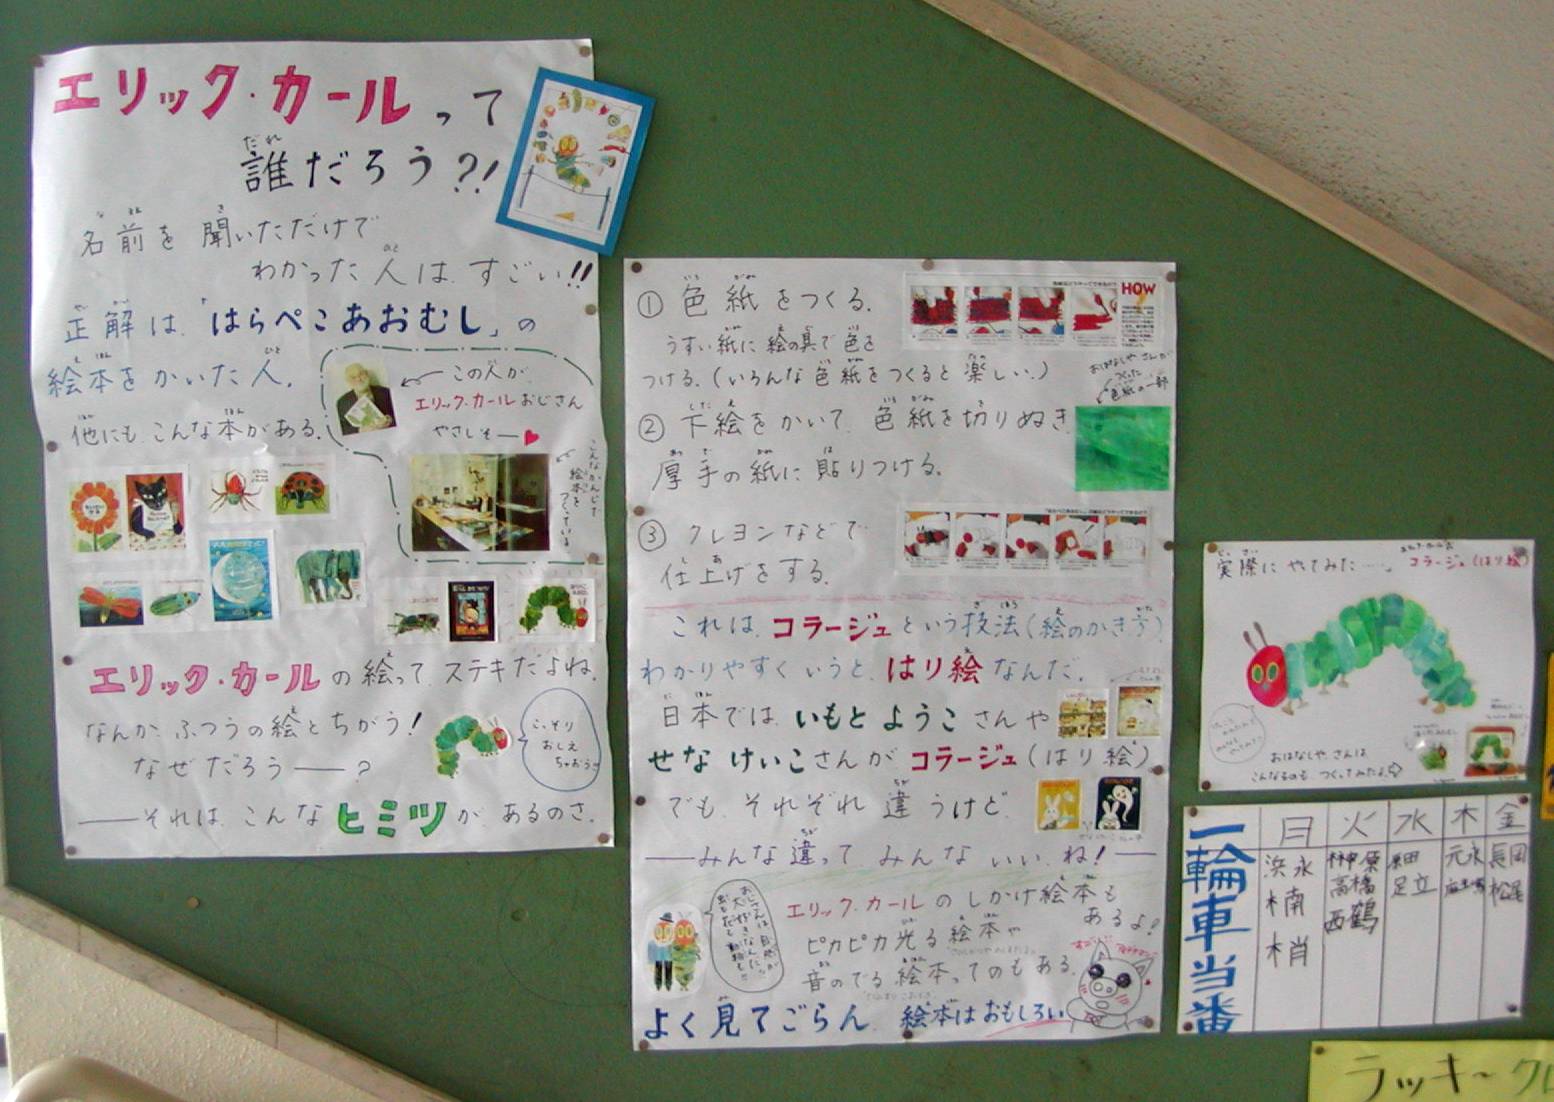 エリック・カールって
誰だろう?!
名前を聞いただけで
わかった人は、すごい!!
正解は、「はらぺこあおむし」の
絵本をかいた人。
他にも、こんな本がある。
この人が、
エリック・カールおじさん
やさしそ――♥
こんなかんじで
絵本を
つくっている
エリック・カールの絵って、ステキだよね。
なんか、ふつうの絵とちがう!
なぜだろう――?
こっそり
おしえ
ちゃおう
――それは、こんなヒミツが、あるのさ。
① 色紙をつくる。
うすい紙に絵の具で色を
つける。(いろんな色紙をつくると楽しい。)
HOW
おはなしやさんが
つくった
色紙の一部
② 下絵をかいて、色紙を切りぬき
厚手の紙に貼りつける。
③ クレヨンなどで
仕上げをする。
これは、コラージュという技法(絵のかき方)
わかりやすくいうと、はり絵なんだ。
日本では、いもとようこさんや
せなけいこさんがコラージュ(はり絵)
でも、それぞれ違うけど、
――みんな違って、みんないい、ね!――
エリック・カールのしかけ絵本も
あるよ!
ピカピカ光る絵本や
音のでる絵本ってのもある。
よく見てごらん。絵本はおもしろい
実際にやってみた……。コラージュ(はり絵)
おはなしやさんは、
こんなのもつくってみたよ
一輪車当番
月 火 水 木 金
浜永 榊原 細田 元永 長岡
楠 高橋 足立 松尾
梢 西鶴
ラッキー